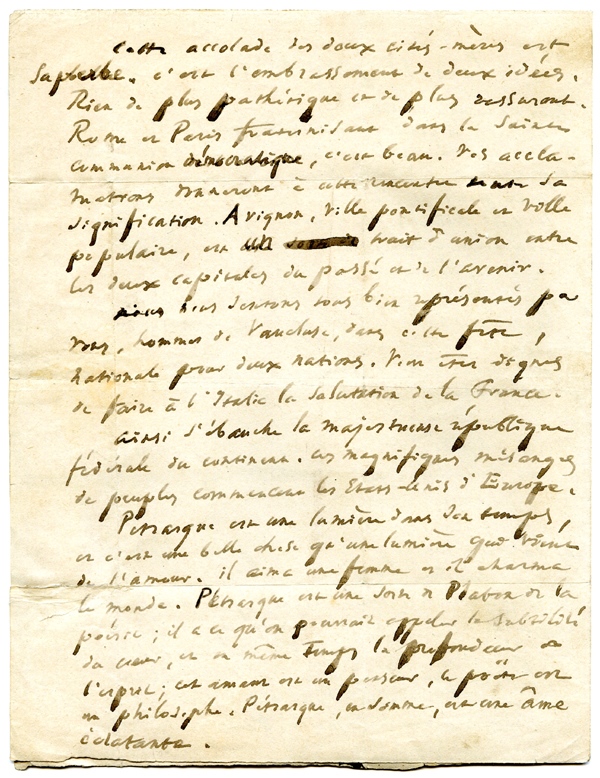 Cette accolade des deux cités-mères est
superbe. c'est l'embrassement de deux idées.
Rien de plus pathétique et de plus rassurant.
Rome et Paris fraternisant dans la sainte
communion démocratique, c'est beau. Vos accla-
mations donneront à cette rencontre toute sa
signification. Avignon, ville pontificale et ville
populaire, est un trait d'union entre
les deux capitales du passé et de l'avenir.
nous nous sentons tous bien représentés par
vous, hommes de Vaucluse, dans cette fête,
nationale pour deux nations. Vous êtes dignes
de faire à l'Italie la salutation de la France.
ainsi s'ébauche la majestueuse république
fédérale du continent. ces magnifiques mélanges
de peuples commencent les Etats-Unis d'Europe.
Pétrarque est une lumière dans son temps,
et c'est une belle chose qu'une lumière qui vient
de l'amour. il aima une femme et il charma
le monde. Pétrarque est une sorte de Platon de la
poésie; il a ce qu'on pourrait appeler la subtilité
du cœur, et en même temps la profondeur de
l'esprit; cet amant est un penseur, ce poëte est
un philosophe. Pétrarque, en somme, est une âme
éclatante.